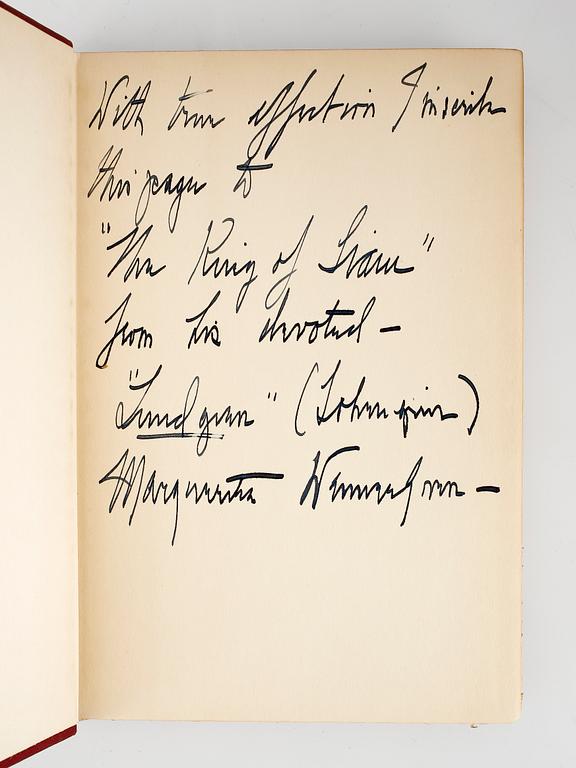 With true affection I inscribe
this page to
"The King of Siam"
from his devoted —
"Lundgren" (Lohengrin)
Marguerite Wennergren —